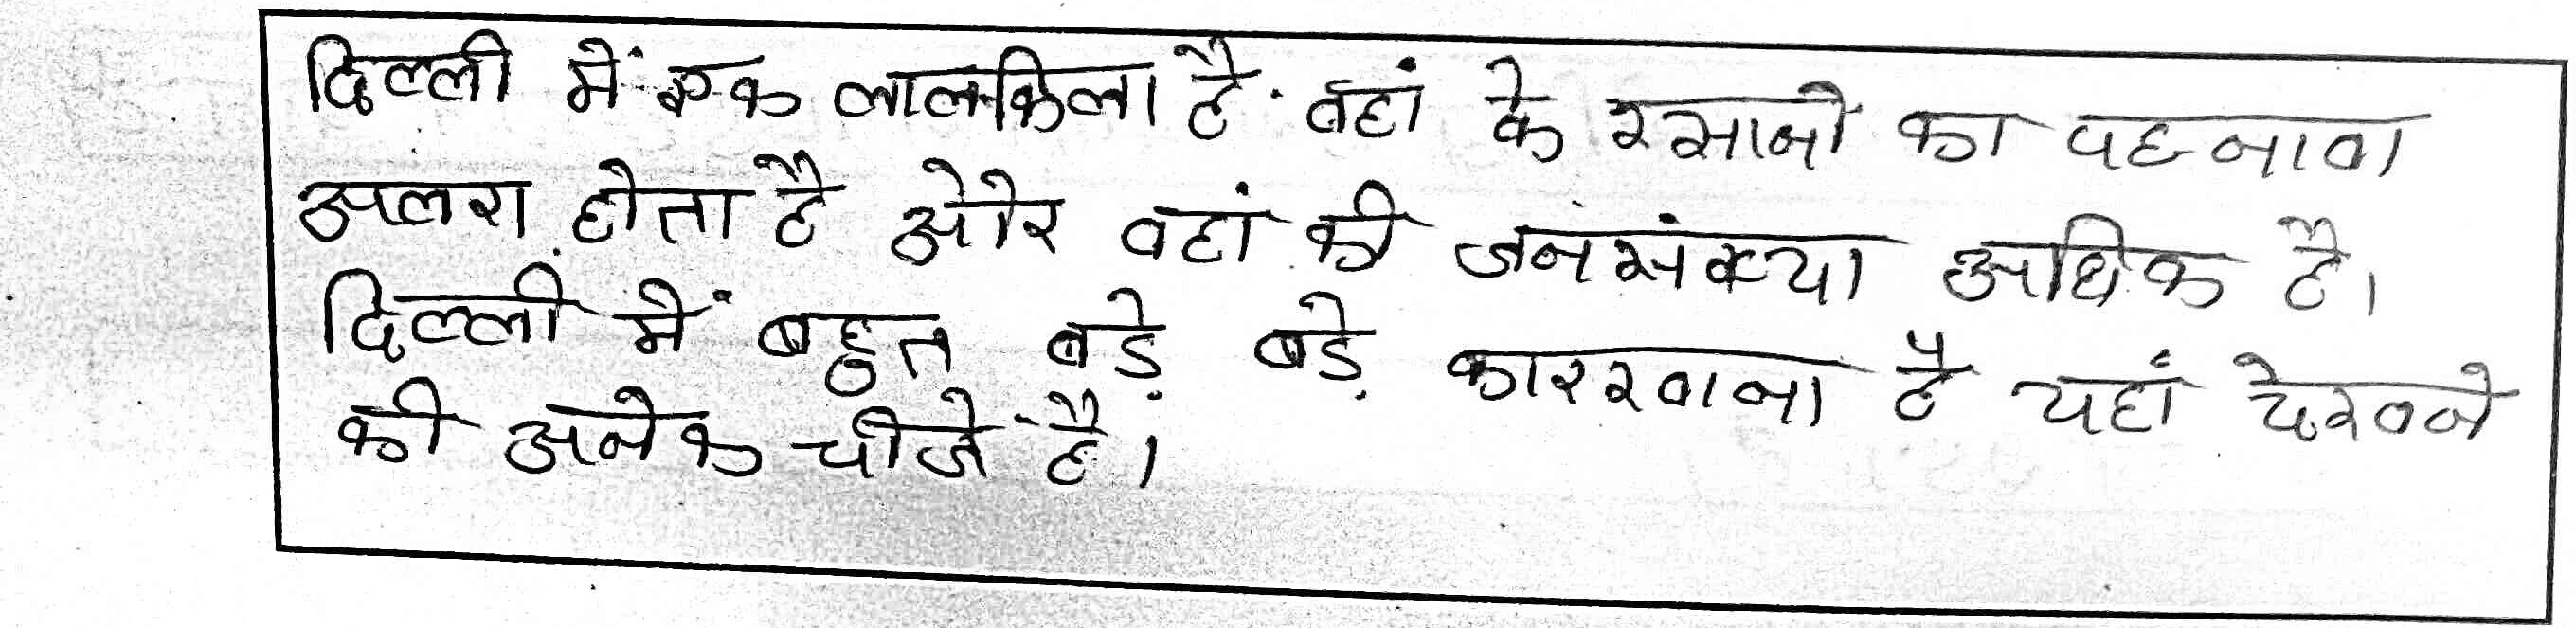 दिल्ली में एक लालकिला है वहां के रसानो का पहनावा
अलग होता है ओर वहां की जनसंक्या अधिक है।
दिल्ली में बहुत बडे़ बडे़ कारखाना है यहां देखने
की अनेक चीजे है।